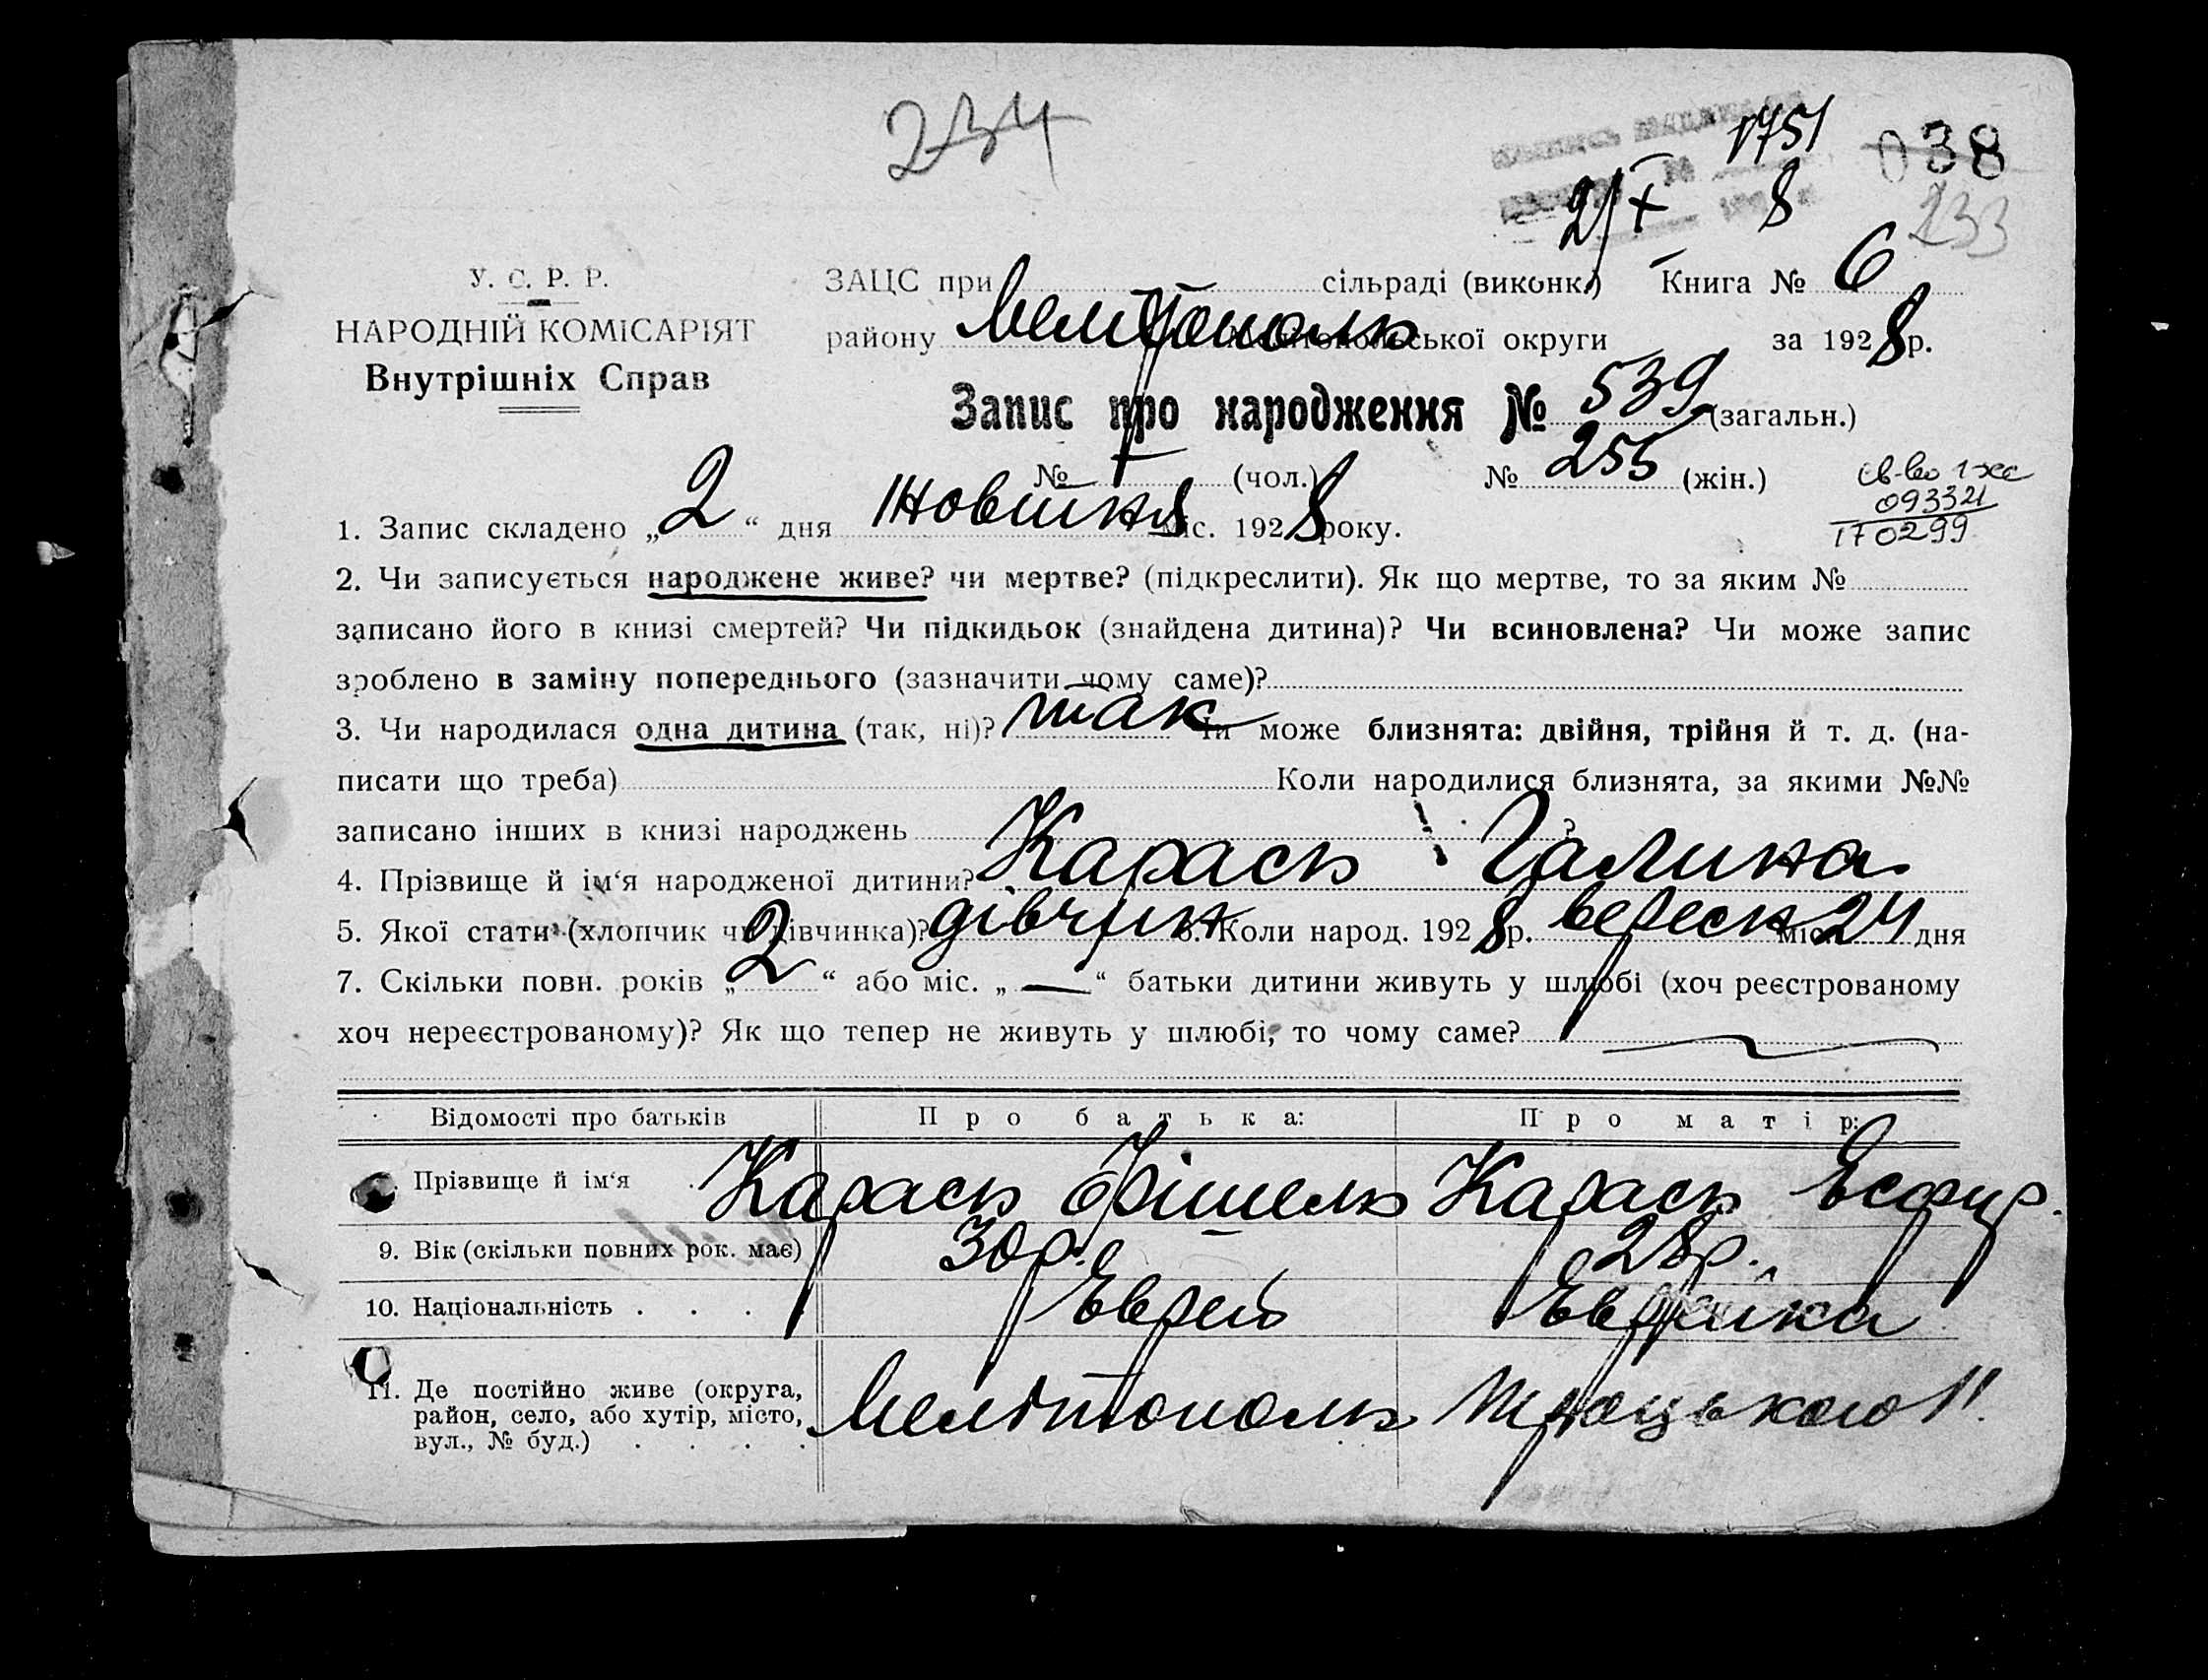 234
1751
038
2/X 8
233
У. С. Р. Р.
НАРОДНІЙ КОМІСАРІЯТ
Внутрішніх Справ
ЗАЦС при сільраді (виконк.) Книга № 6
району Мелітополь Мелітопольської округи за 1928 р.
Запис про народження № 539 (загальн.)
№ (чол.) № 255 (жін.)
св-во 1-жс
093321
170299
1. Запис складено „2“ дня Жовтня міс. 1928 року.
2. Чи записується народжене живе? чи мертве? (підкреслити). Як що мертве, то за яким №
записано його в книзі смертей? Чи підкидьок (знайдена дитина)? Чи всиновлена? Чи може запис
зроблено в заміну попереднього (зазначити чому саме)?
3. Чи народилася одна дитина (так, ні)? так Чи може близнята: двійня, трійня й т. д. (на-
писати що треба) Коли народилися близнята, за якими №№
записано інших в книзі народжень ?
4. Прізвище й ім‘я народженої дитини? Карась Галина
5. Якої стати (хлопчик чи дівчинка)? дівчин 6. Коли народ. 1928 р. вересн міс. 24 дня
7. Скільки повн. років „2“ або міс. „—“ батьки дитини живуть у шлюбі (хоч реєстрованому
хоч нереєстрованому)? Як що тепер не живуть у шлюбі, то чому саме?
Відомості про батьків Про батька: Про матір:
Прізвище й ім‘я Карась Фішель Карась Есфир.
9. Вік (скільки повних рок. має) 30 р. 28 р.
10. Національність . . . Еврей Еврейка
11. Де постійно живе (округа, район, село, або хутір, місто, вул., № буд.) . . . . Мелітополь Троцького 11.